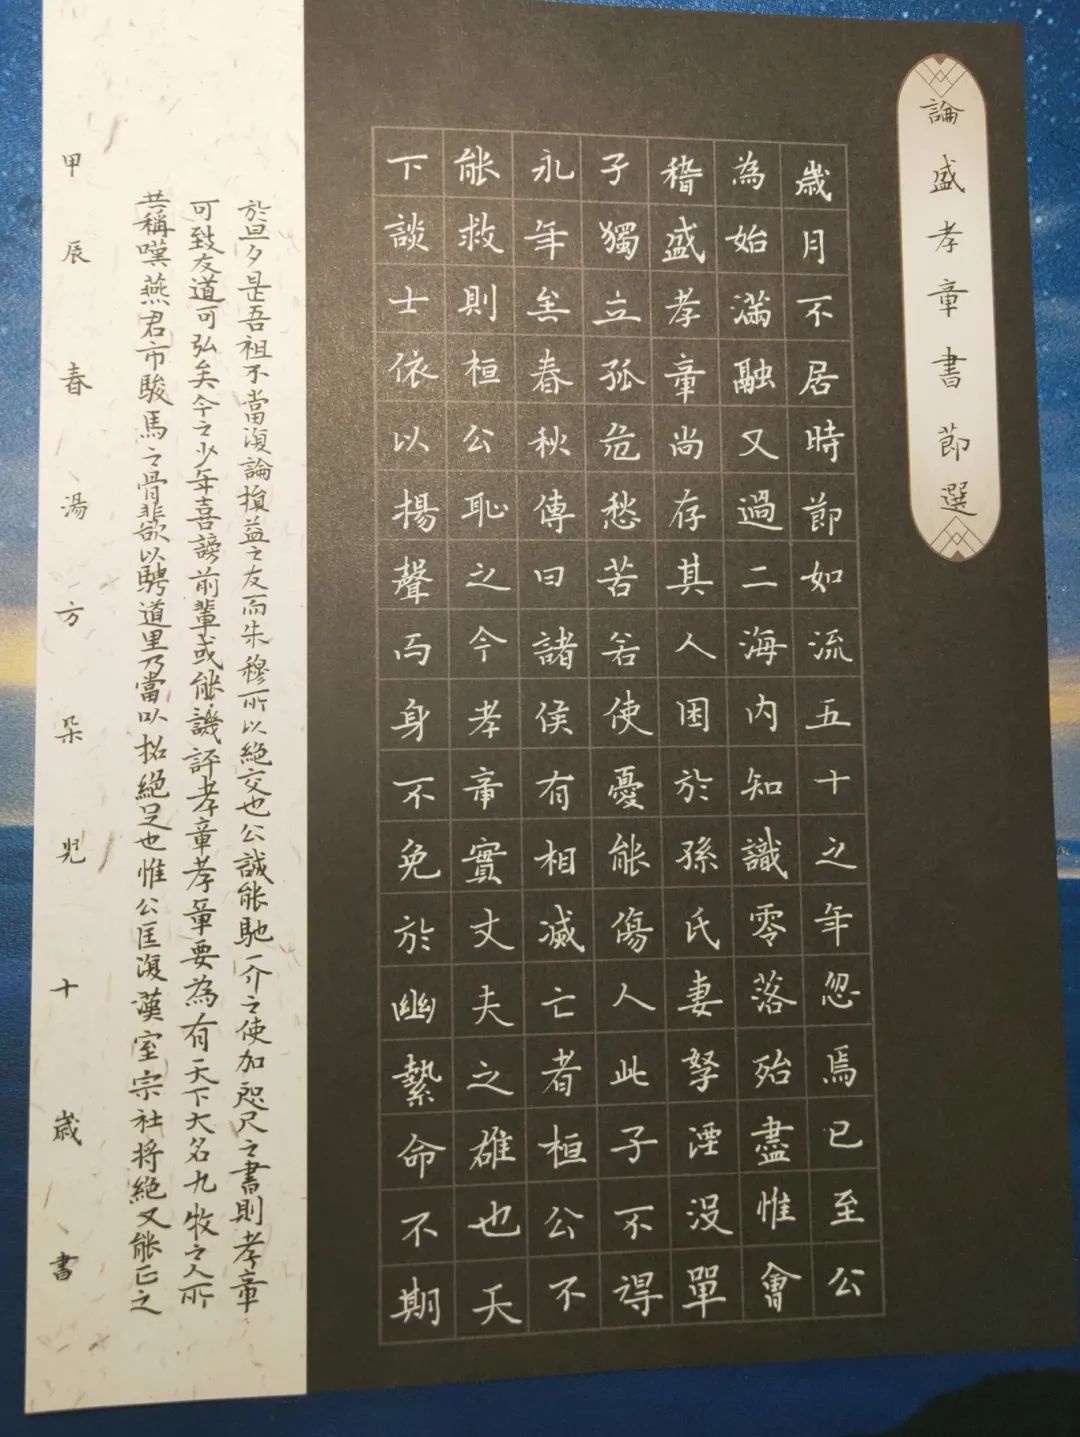 論盛孝章書節選
歲月不居時節如流五十之年忽焉已至公
為始滿融又過二海内知識零落殆盡惟會
稽盛孝章尚存其人困於孫氏妻孥湮没單
子獨立孤危愁苦若使憂能傷人此子不得
永年矣春秋傳曰諸侯有相滅亡者桓公不
能救則桓公恥之今孝章實丈夫之雄也天
下談士依以揚聲而身不免於幽縶命不期
於旦夕是吾祖不當復論損益之友而朱穆所以絕交也公誠能馳一介之使加咫尺之書則孝章
可致友道可弘矣今之少年喜謗前輩或能譏評孝章孝章要為有天下大名九牧之人所
共稱嘆燕君市駿馬之骨非欲以騁道里乃當以招絕足也惟公匡復漢室宗社將絕又能正之
甲辰春湯方朵兒十歲書